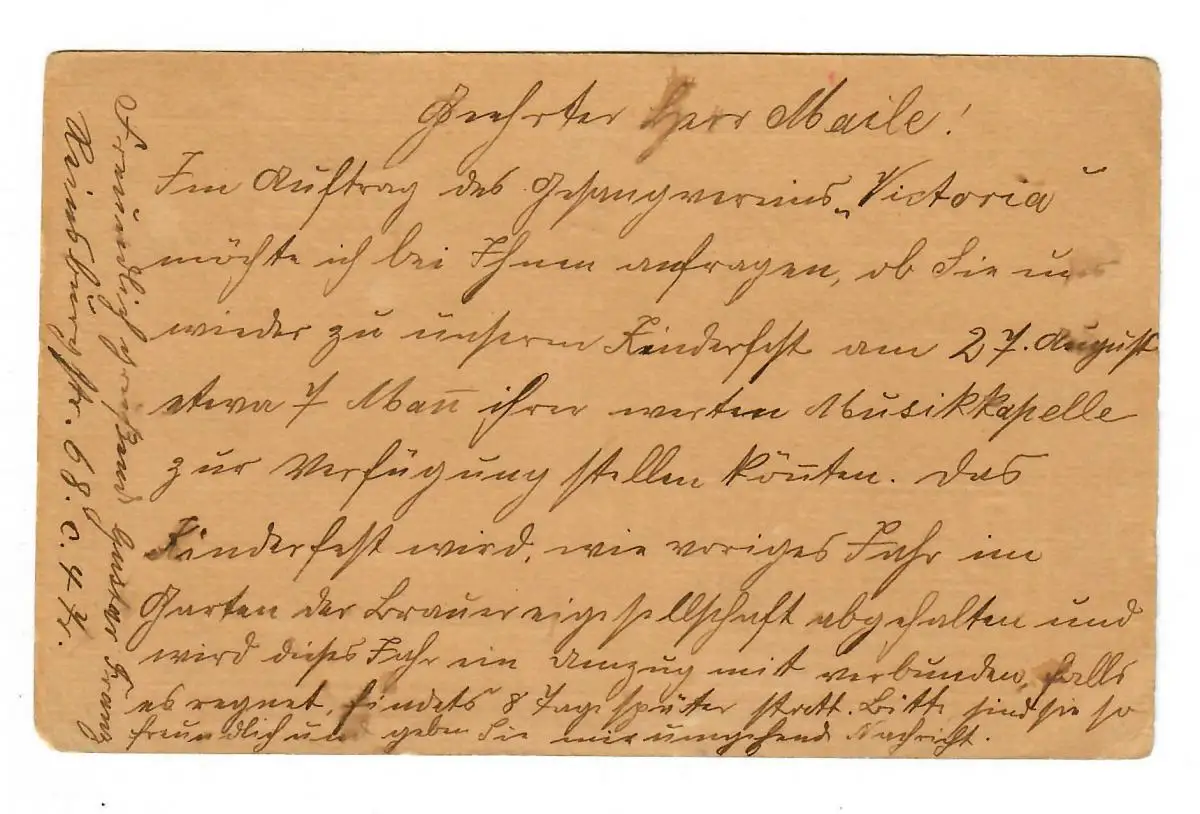 Geehrter Herr Maile!
Im Auftrag des Gesangvereins „Victoria“
möchte ich bei Ihnen anfragen, ob Sie uns
wieder zu unserm Kinderfest am 27. August
etwa 7 Mañ ihrer werten Musikkapelle
zur Verfügung stellen köñten. Das
Kinderfest wird, wie voriges Jahr im
Garten der Brauereigesellschaft abgehalten und
wird dieses Jahr ein Umzug mit verbunden, falls
es regnet, findets 8 Tage später statt. Bitte sind sie so
freundlich und geben Sie mir umgehend Nachricht.
Freundlich grüßend Gustav Franz
Reinsburgstr. 68. c. 4 Tr.